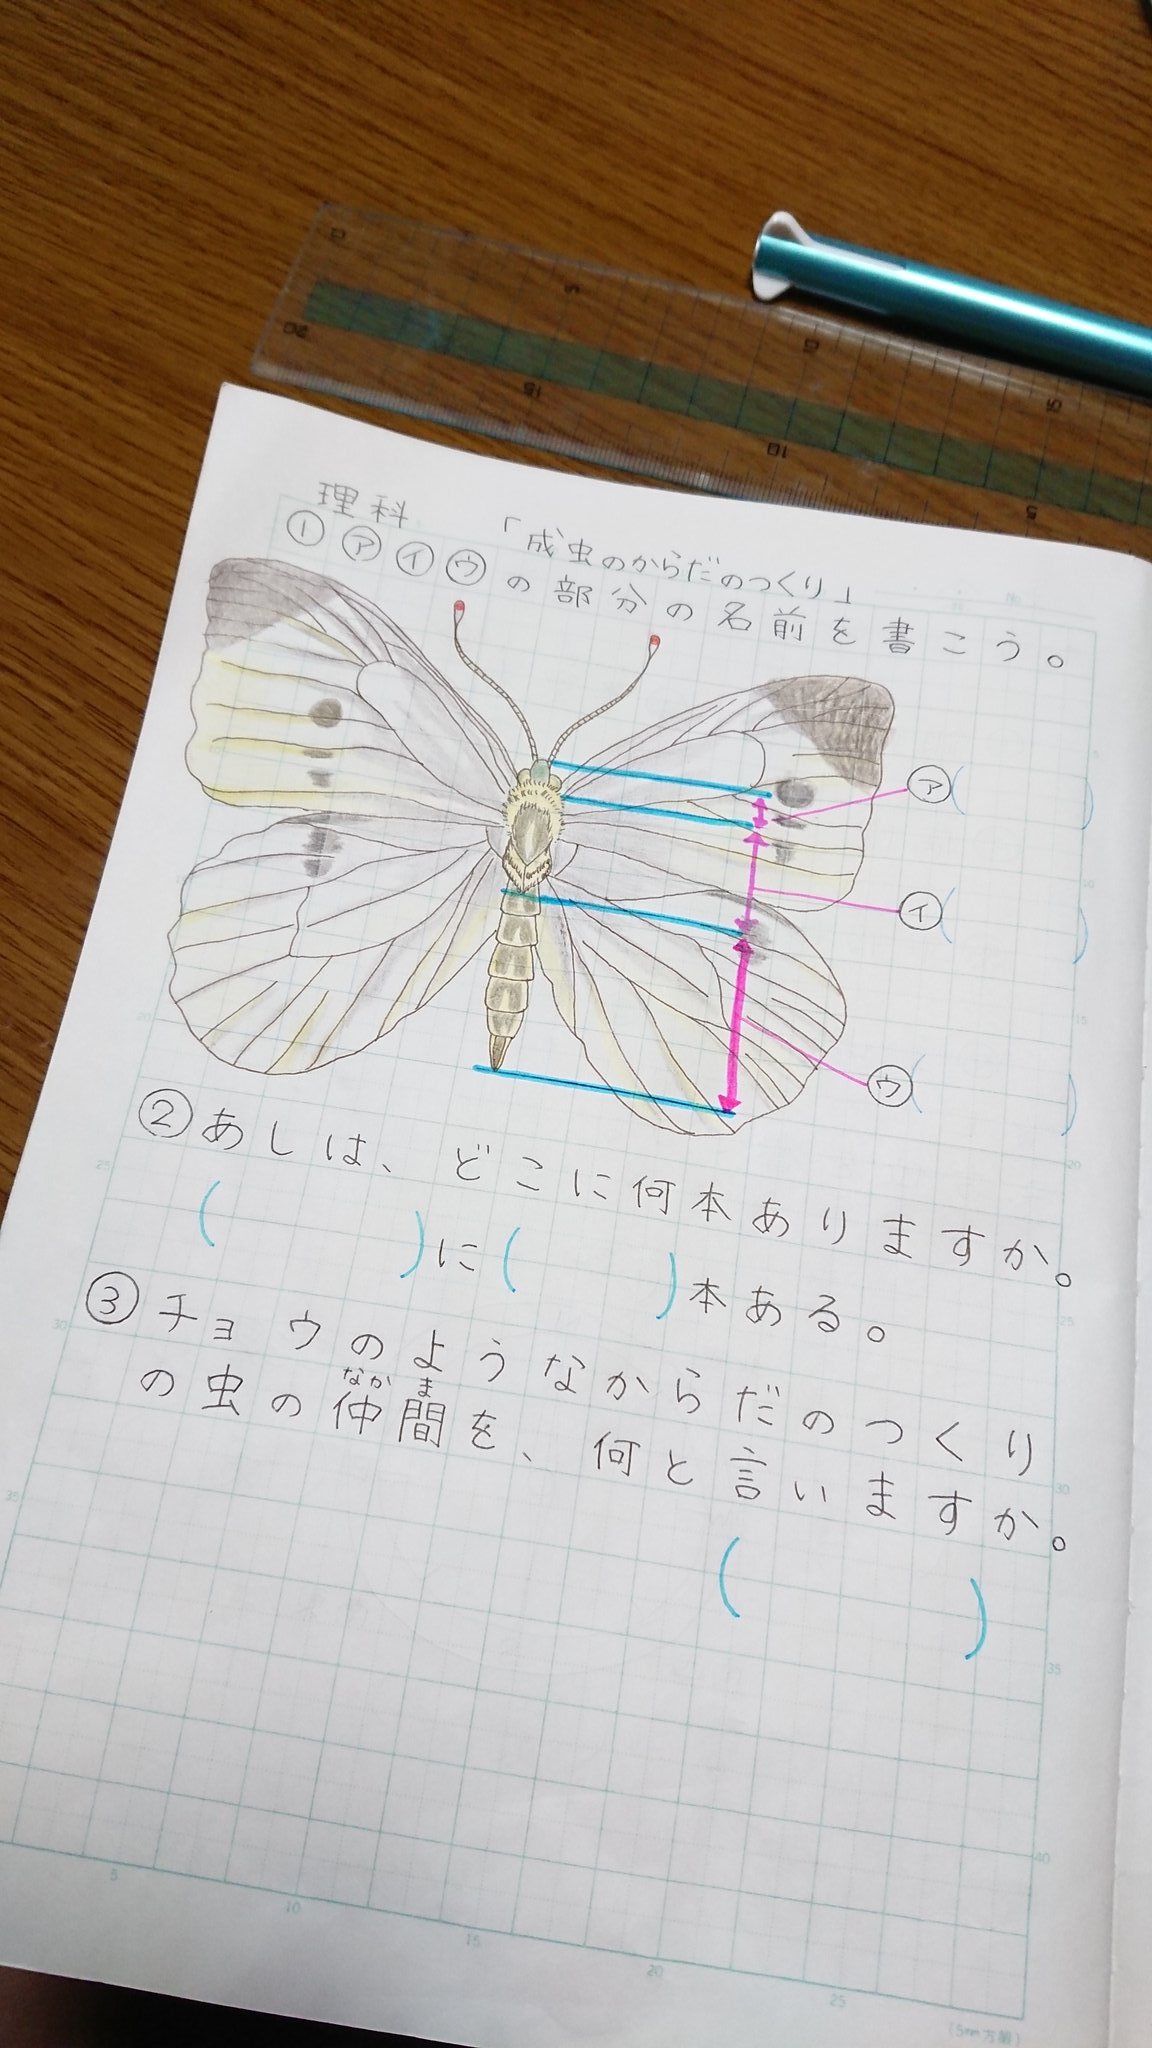 理科 「成虫のからだのつくり」
① ㋐ ㋑ ㋒ の部分の名前を書こう。
㋐( )
㋑( )
㋒( )
② あしは、どこに何本ありますか。
( )に( )本ある。
③ チョウのようなからだのつくり
なかま
の虫の仲間を、何と言いますか。
( )
(5mm方眼)